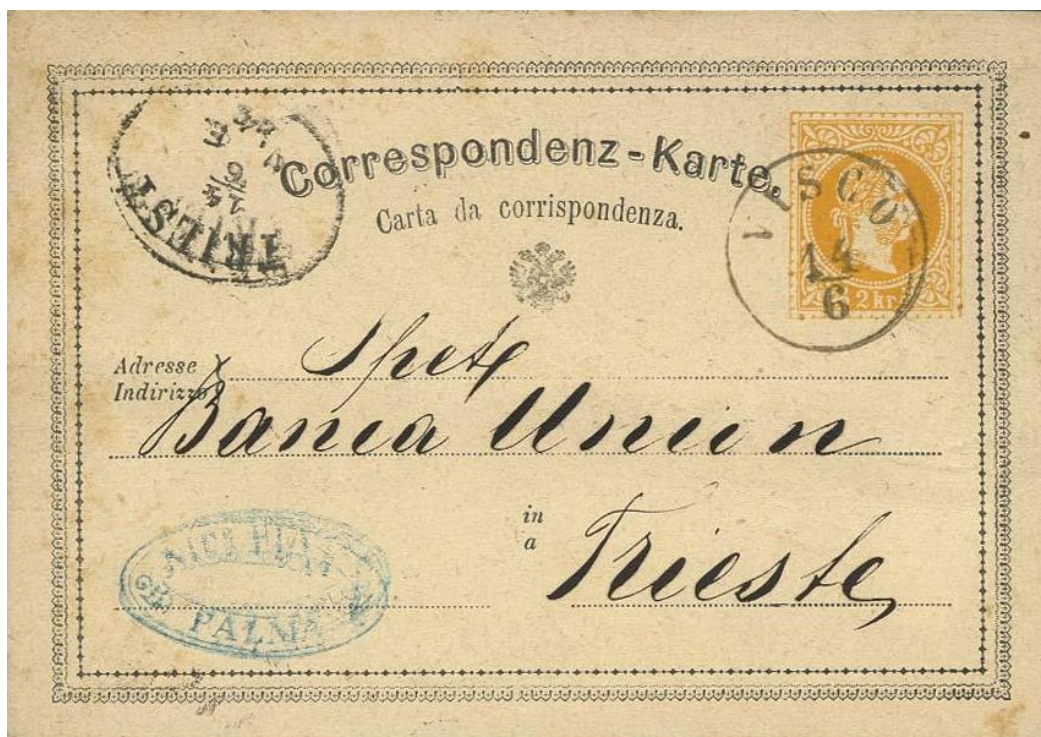 Correspondenz-Karte.
Carta da corrispondenza.
TRIEST
14
6
14
6
2 kr.
Adresse
Indirizzo
Spete
Banca Union
in
a
Trieste
PALMA